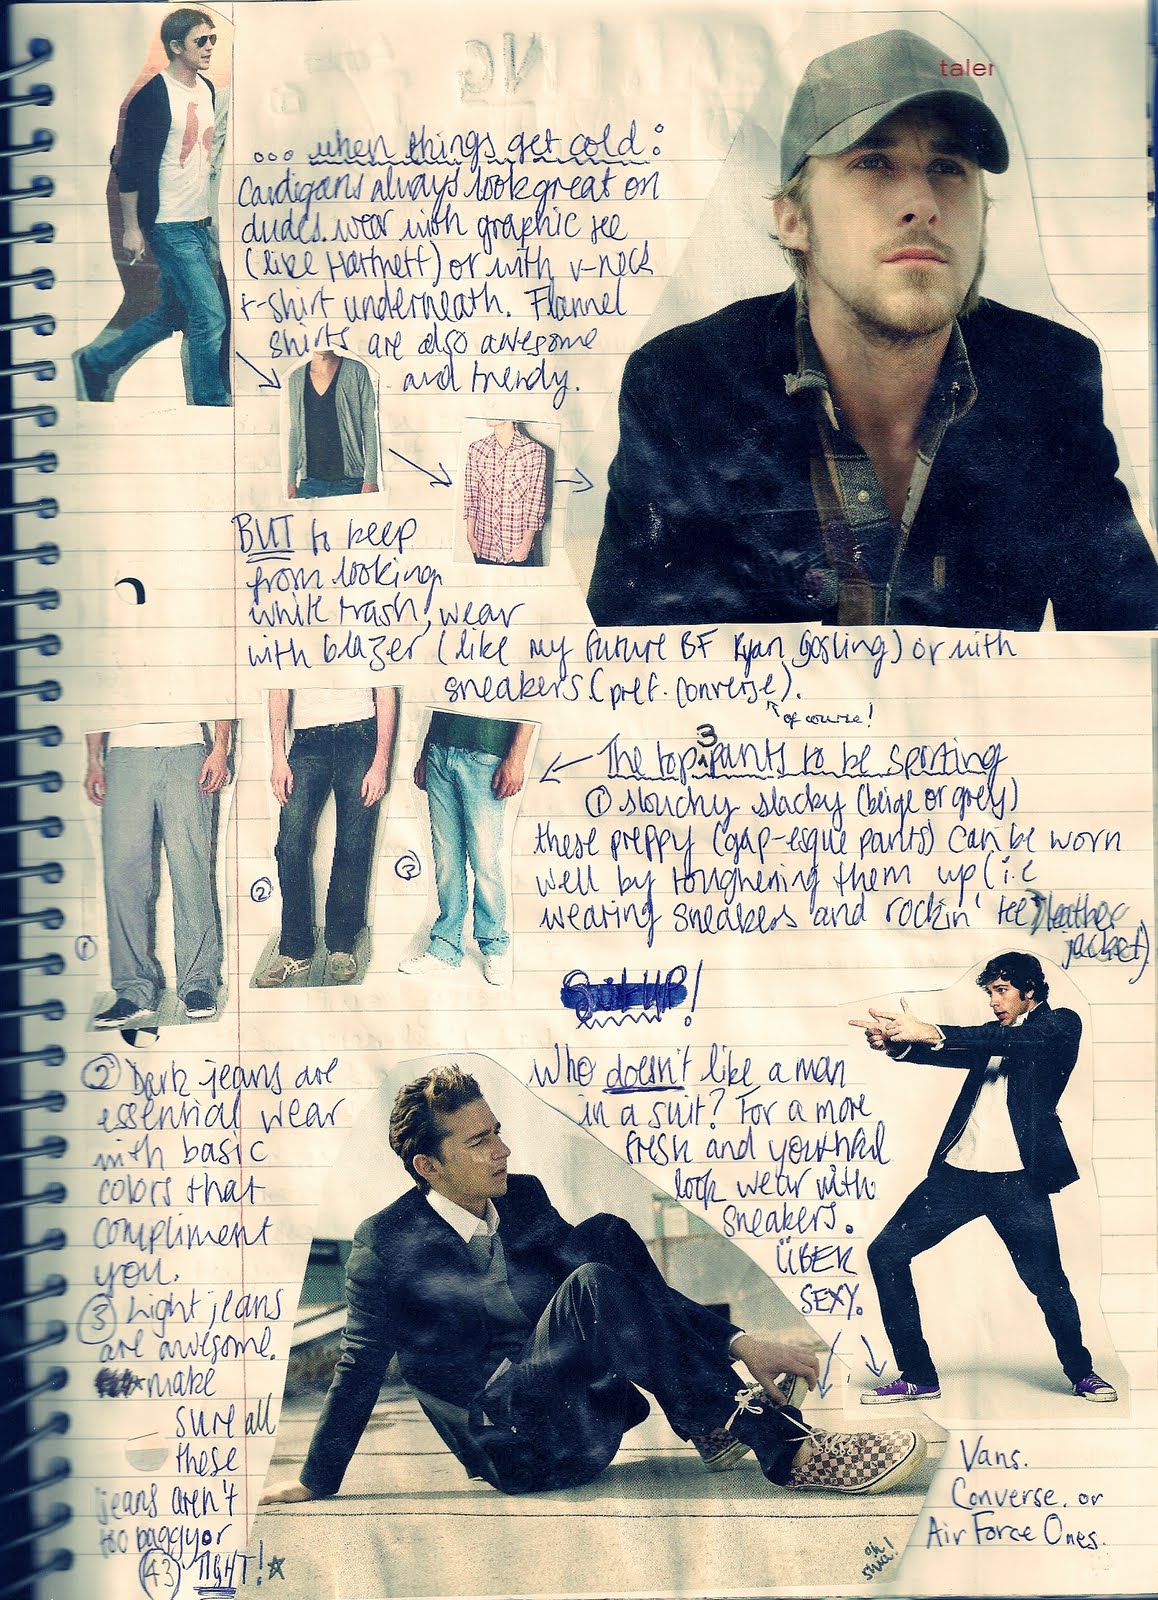 taler
... when things get cold:
Cardigans always look great on
dudes. wear with graphic tee
(like Hartnett) or with v-neck
t-shirt underneath. Flannel
shirts are also awesome
and trendy.
BUT to keep
from looking
white trash, wear
with blazer (like my future BF Ryan Gosling) or with
sneakers (pref. Converse).
of course!
The top 3 pants to be sporting
① slouchy slacky (beige or grey)
these preppy (gap-esque pants) can be worn
well by toughening them up (i.e
wearing sneakers and rockin' tee leather
jacket)
①
②
③
Suit UP!
Who doesn't like a man
in a suit? For a more
fresh and youthful
look wear with
sneakers.
ÜBER
SEXY.
② Dark jeans are
essential wear
with basic
colors that
compliment
you.
③ Light jeans
are awesome.
make
sure all
these
jeans aren't
too baggy or
TIGHT!
43
Vans.
Converse. or
Air Force Ones.
oh
shia!